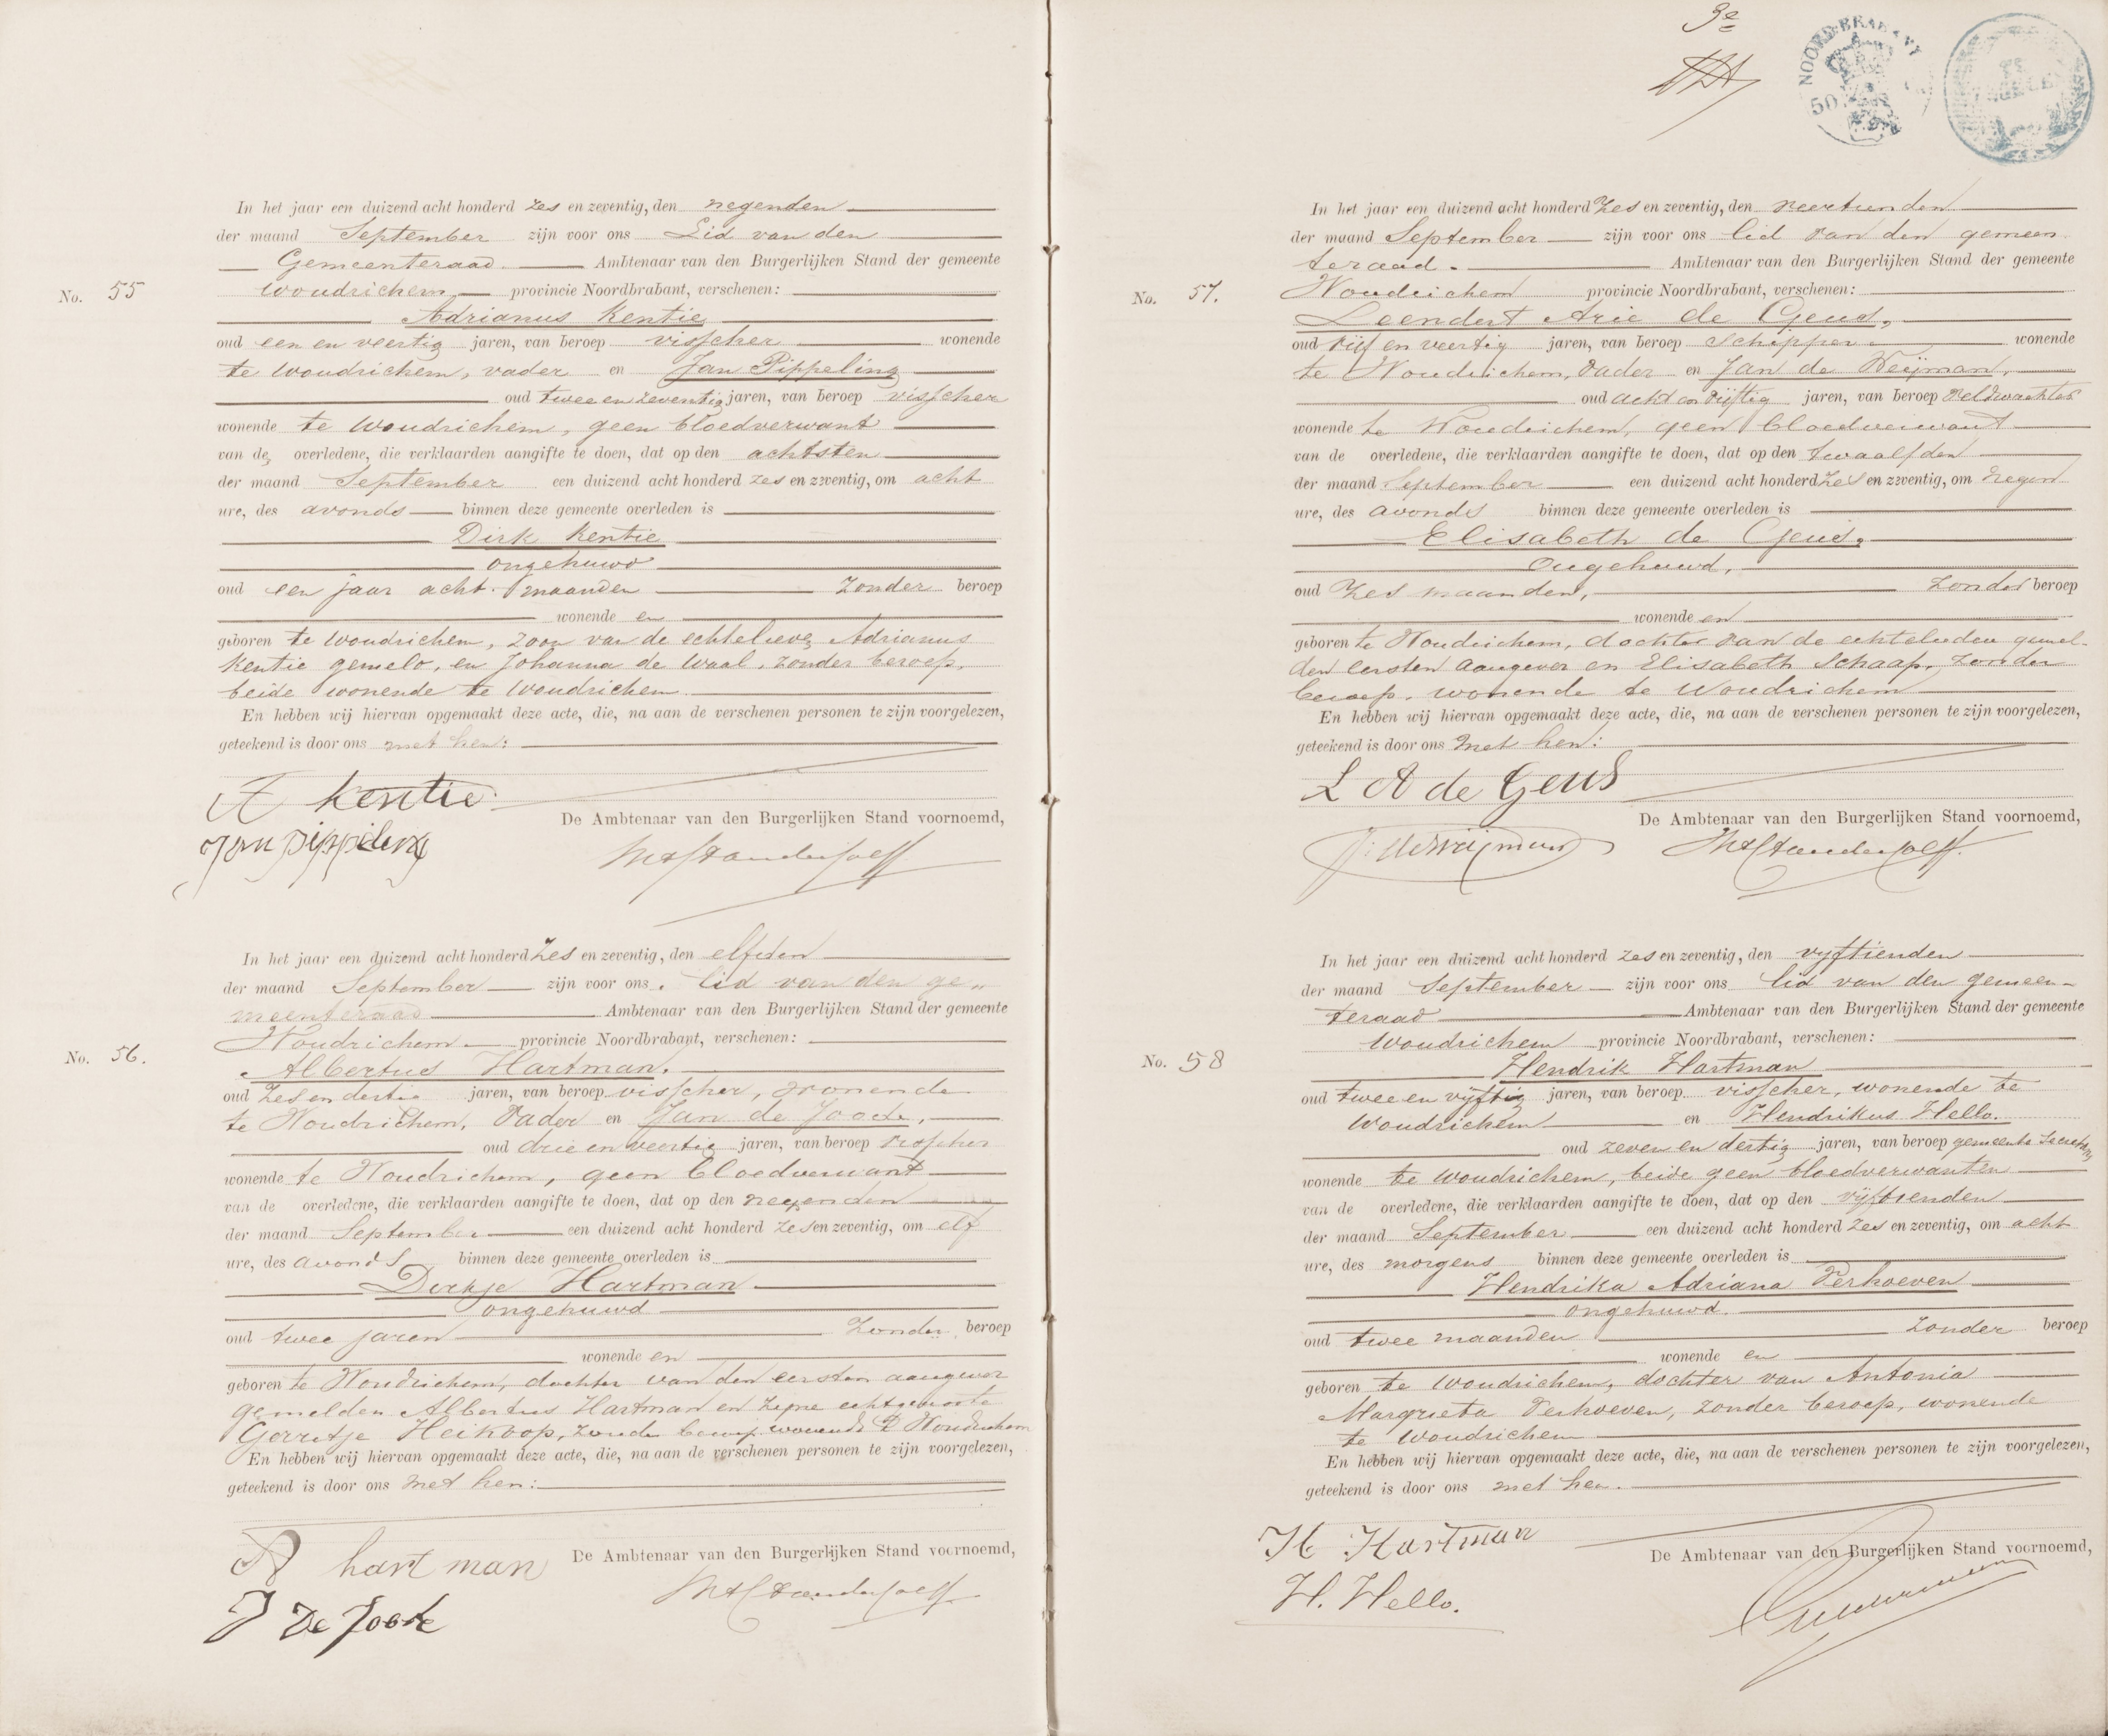 In het jaar een duizend acht honderd zes en zeventig, den negenden
der maand September zijn voor ons Lid van den
Gemeenteraad. Ambtenaar van den Burgerlijken Stand der gemeente
No. 55 Woudrichem, provincie Noordbrabant, verschenen:
Adrianus Kentie
oud een en veertig jaren, van beroep visscher wonende
te Woudrichem, vader en Jan Pippeling
oud twee en zeventig jaren, van beroep visscher
wonende te Woudrichem, geen bloedverwant
van de overledene, die verklaarden aangifte te doen, dat op den achtsten
der maand September een duizend acht honderd zes en zeventig, om acht
ure, des avonds binnen deze gemeente overleden is
Dirk Kentie
ongehuwd
oud een jaar acht maanden Zonder beroep
wonende en
geboren te Woudrichem, zoon van de echtelieden Adrianus
Kentie gemeld, en Johanna de Waal, zonder beroep,
beide wonende te Woudrichem
En hebben wij hiervan opgemaakt deze acte, die, na aan de verschenen personen te zijn voorgelezen,
geteekend is door ons met hen:
A Kentie
De Ambtenaar van den Burgerlijken Stand voornoemd,
Jan pippeling
In het jaar een duizend acht honderd Zes en zeventig, den elfden
der maand September zijn voor ons. lid van den ge„
meenteraad Ambtenaar van den Burgerlijken Stand der gemeente
No. 56. Woudrichem provincie Noordbrabant, verschenen:
Albertus Hartman.
oud Zes en dertig jaren, van beroep visscher, wonende
te Woudrichem, Vader en Jan de Joode,
oud drie en veertig jaren, van beroep visscher
wonende te Woudrichem, geen bloedverwant
van de overledene, die verklaarden aangifte te doen, dat op den negenden
der maand September een duizend acht honderd Zes en zeventig, om elf
ure, des avonds binnen deze gemeente overleden is
Dirkje Hartman
ongehuwd
oud twee jaren Zonder beroep
wonende en
geboren te Woudrichem, dochter van den eersten aangever
gemelden Albertus Hartman en zijne echtgenoote
Gerritje Heikoop, zonder beroep wonende te Woudrichem
En hebben wij hiervan opgemaakt deze acte, die, na aan de verschenen personen te zijn voorgelezen,
geteekend is door ons met hen:
A hartman
De Ambtenaar van den Burgerlijken Stand voornoemd,
J De Joode
3e
NOORD-BRABANT
50
In het jaar een duizend acht honderd Zes en zeventig, den veertienden
der maand September zijn voor ons lid van den gemeen
teraad. Ambtenaar van den Burgerlijken Stand der gemeente
No. 57. Woudrichem provincie Noordbrabant, verschenen:
Leendert Arie de Geus,
oud vijf en veertig jaren, van beroep Schipper wonende
te Woudrichem, Vader en Jan de Weijman,
oud acht en vijftig jaren, van beroep Veldwachter
wonende te Woudrichem, geen bloedverwant
van de overledene, die verklaarden aangifte te doen, dat op den twaalfden
der maand September een duizend acht honderd Zes en zeventig, om negen
ure, des avonds binnen deze gemeente overleden is
Elisabeth de Geus,
Ongehuwd,
oud Zes maanden, Zonder beroep
wonende en
geboren te Woudrichem, dochter van de echtelieden gemel-
den eersten aangever en Elisabeth Schaap, zonder
beroep, wonende te Woudrichem
En hebben wij hiervan opgemaakt deze acte, die, na aan de verschenen personen te zijn voorgelezen,
geteekend is door ons met hen:
L A de Geus
De Ambtenaar van den Burgerlijken Stand voornoemd,
In het jaar een duizend acht honderd zes en zeventig, den vyftienden
der maand September zijn voor ons lid van den gemeen-
teraad Ambtenaar van den Burgerlijken Stand der gemeente
Woudrichem provincie Noordbrabant, verschenen:
No. 58 Hendrik Hartman
oud twee en vyftig jaren, van beroep visscher, wonende te
Woudrichem en Hendrikus Hello.
oud zeven en dertig jaren, van beroep gemeente Secretaris
wonende te Woudrichem, beide geen bloedverwanten
van de overledene, die verklaarden aangifte te doen, dat op den vijftienden
der maand September een duizend acht honderd Zes en zeventig, om acht
ure, des morgens binnen deze gemeente overleden is
Hendrika Adriana Verhoeven
ongehuwd.
oud twee maanden Zonder beroep
wonende en
geboren te Woudrichem, dochter van Antonia
Margrieta Verhoeven, zonder beroep, wonende
te Woudrichem
En hebben wij hiervan opgemaakt deze acte, die, na aan de verschenen personen te zijn voorgelezen,
geteekend is door ons met hen.
H Hartman
De Ambtenaar van den Burgerlijken Stand voornoemd,
H. Hello.